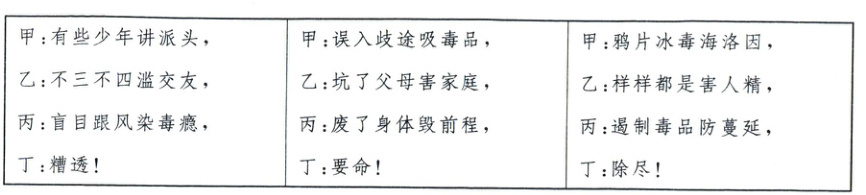 甲:有些少年讲派头，
乙:不三不四滥交友，
丙:盲目跟风染毒瘾，
丁:糟透！
甲:误入歧途吸毒品，
乙:坑了父母害家庭，
丙:废了身体毁前程，
丁:要命！
甲:鸦片冰毒海洛因，
乙:样样都是害人精，
丙:遏制毒品防蔓延，
丁:除尽！